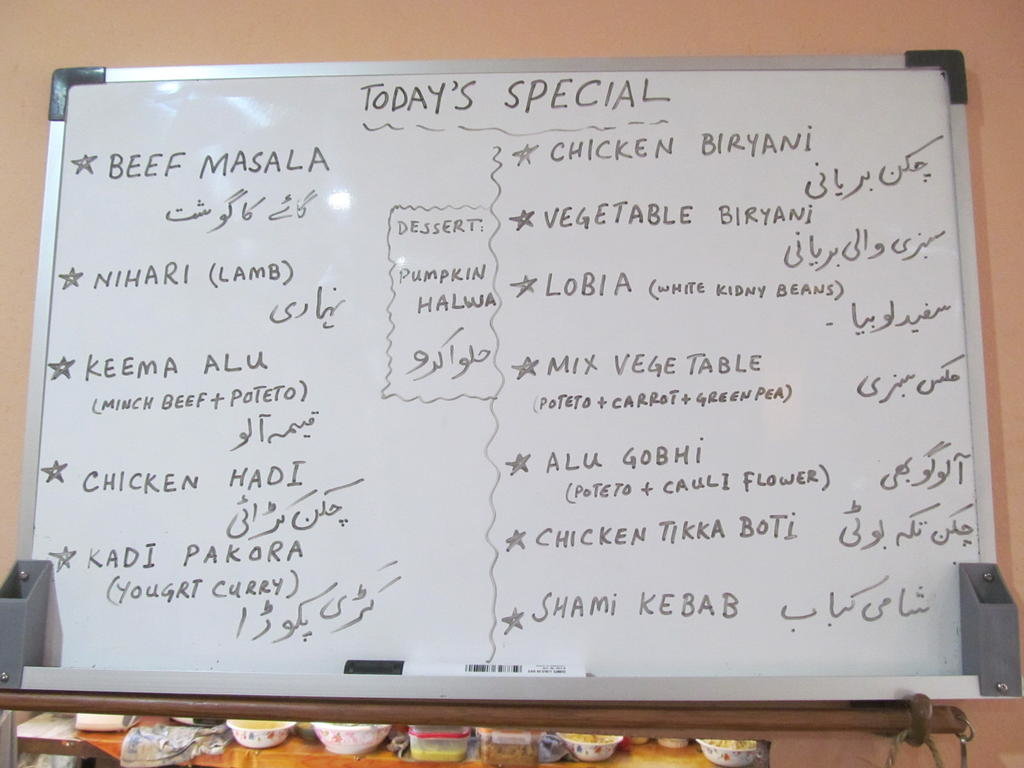 TODAY'S SPECIAL
BEEF MASALA
گائے کا گوشت
NIHARI (LAMB)
نہاری
KEEMA ALU
(MINCH BEEF + POTETO)
قیمہ آلو
CHICKEN HADI
چکن کڑائی
KADI PAKORA
(YOUGRT CURRY)
کڑی پکوڑا
DESSERT:
PUMPKIN
HALWA
حلوا کدو
CHICKEN BIRYANI
چکن بریانی
VEGETABLE BIRYANI
سبزی والی بریانی
LOBIA (WHITE KIDNY BEANS)
سفید لوبیا -
MIX VEGETABLE
مکس سبزی
(POTETO + CARROT + GREEN PEA)
ALU GOBHI
آلو گوبھی
(POTETO + CAULI FLOWER)
CHICKEN TIKKA BOTI چکن تکہ بوٹی
SHAMI KEBAB شامی کباب